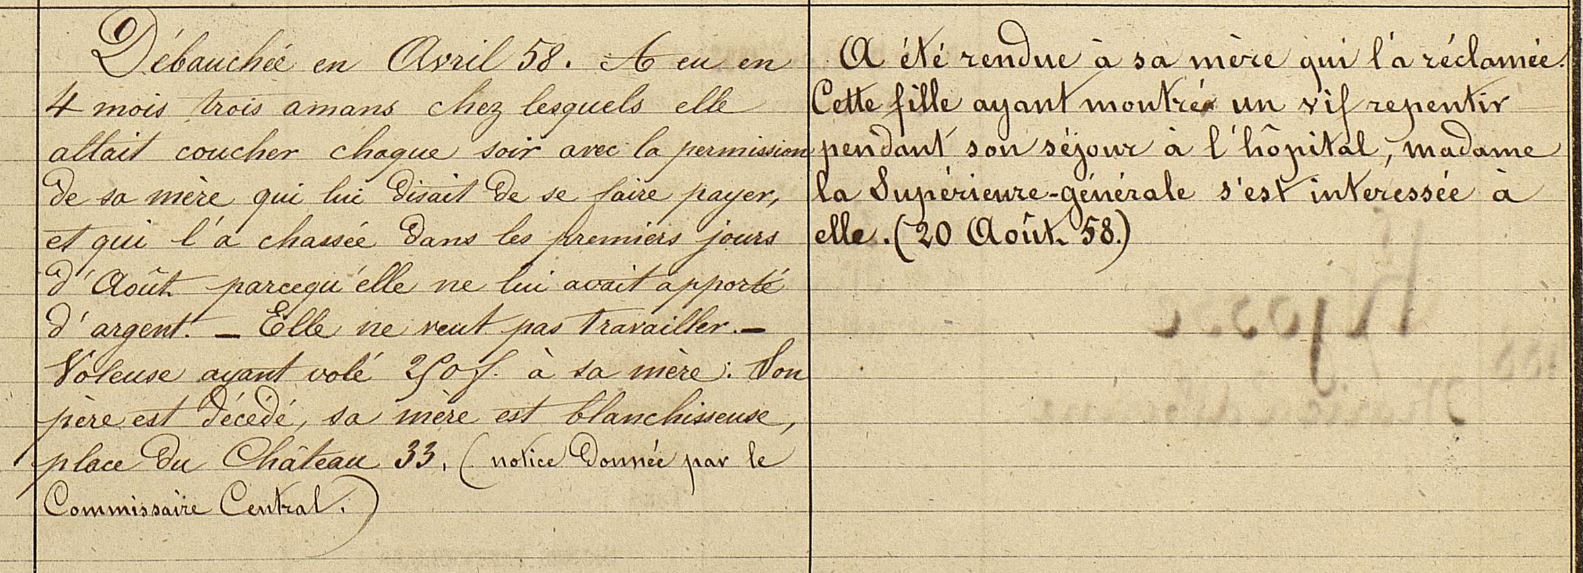 Débauchée en Avril 58. A eu en
4 mois trois amans chez lesquels elle
allait coucher chaque soir avec la permission
de sa mère qui lui disait de se faire payer,
et qui l'a chassée dans les premiers jours
d'Août parcequ'elle ne lui avait apporté
d'argent. — Elle ne veut pas travailler. —
Voleuse ayant volé 250f. à sa mère. Son
père est décédé, sa mère est blanchisseuse,
place du Château 33. (notice donnée par le
Commissaire Central.)
A été rendue à sa mère qui l'a réclamée.
Cette fille ayant montré un vif repentir
pendant son séjour à l'hôpital, madame
la Supérieure-générale s'est interessée à
elle. (20 Août 58.)